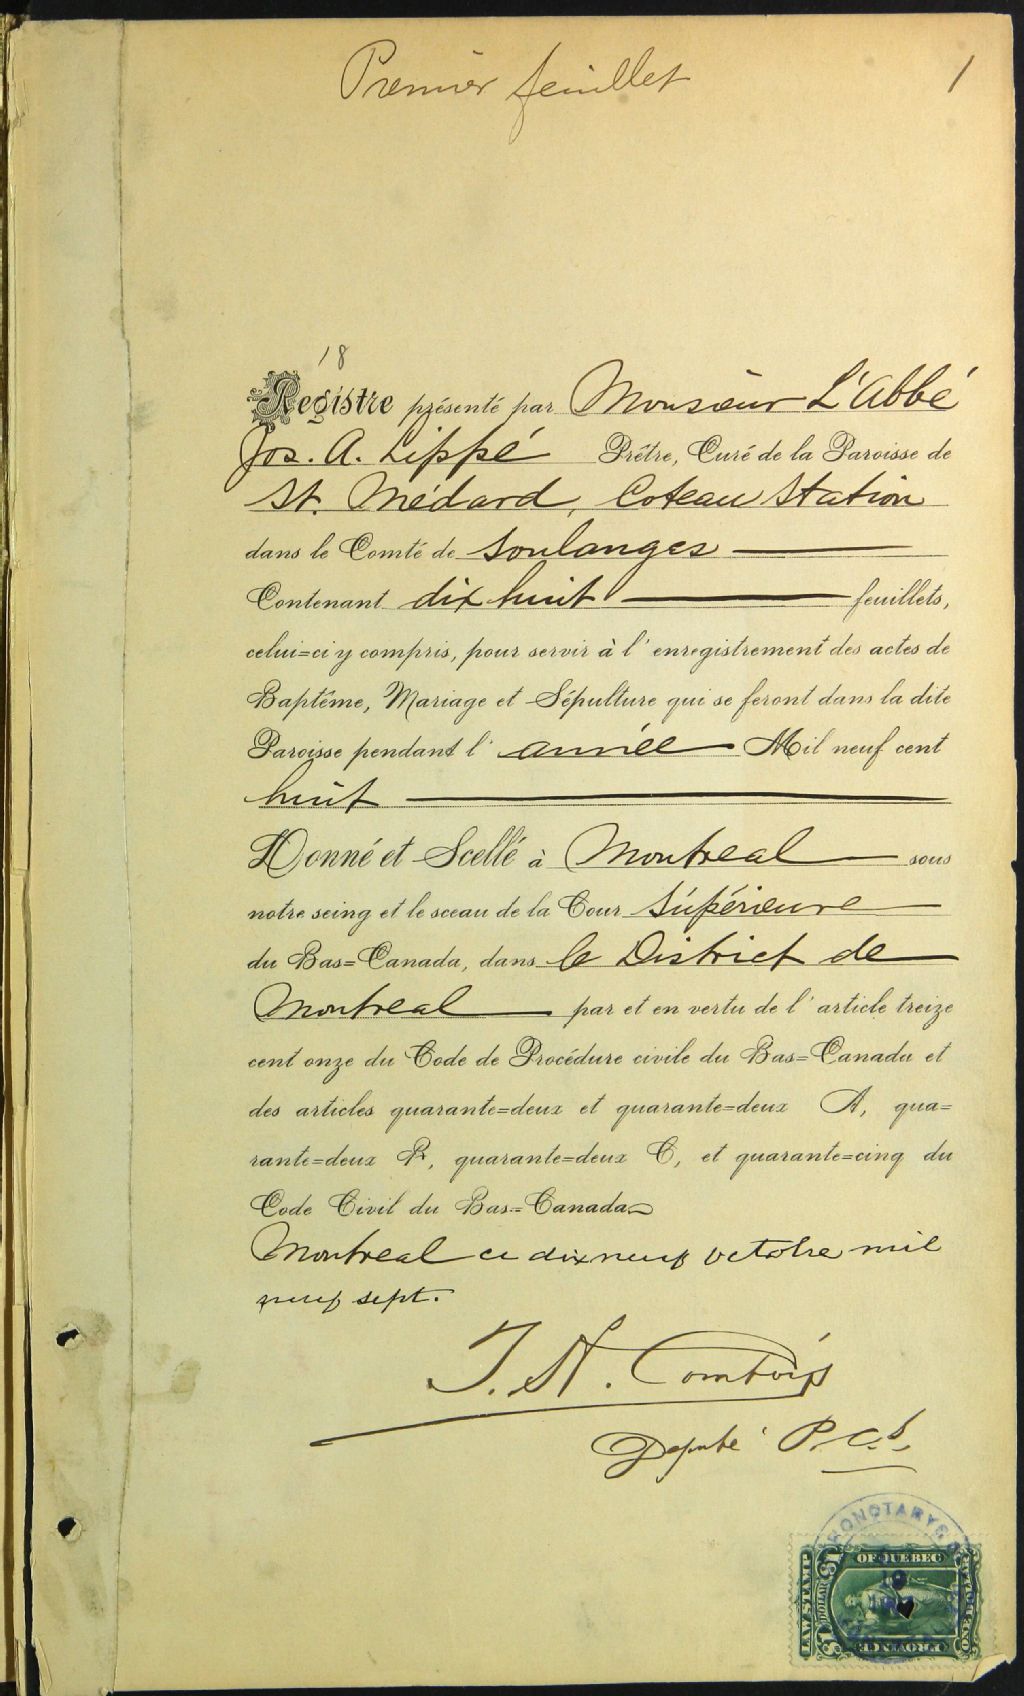 Premier feuillet
1
18
Registre présenté par Monsieur L'Abbé
Jos. A. Lippé Prêtre, Curé de la Paroisse de
St. Médard, Coteau Station
dans le Comté de Soulanges
Contenant dix huit feuillets,
celui=ci y compris, pour servir à l'enregistrement des actes de
Baptême, Mariage et Sépulture qui se feront dans la dite
Paroisse pendant l'année Mil neuf cent
huit
Donné et Scellé à Montreal sous
notre seing et le sceau de la Cour Supérieure
du Bas=Canada, dans le District de
Montreal par et en vertu de l'article treize
cent onze du Code de Procédure civile du Bas=Canada et
des articles quarante=deux et quarante=deux A, qua=
rante=deux B, quarante=deux C, et quarante=cinq du
Code Civil du Bas=Canada
Montreal ce dix neuf octobre mil
neuf sept.
J. A. Comtois
Deputé P.C.S.
PRONOTARY
LAW STAMP
OF QUEBEC
$1
DOLLAR
19
PROVINCE
ONE DOLLAR
$1